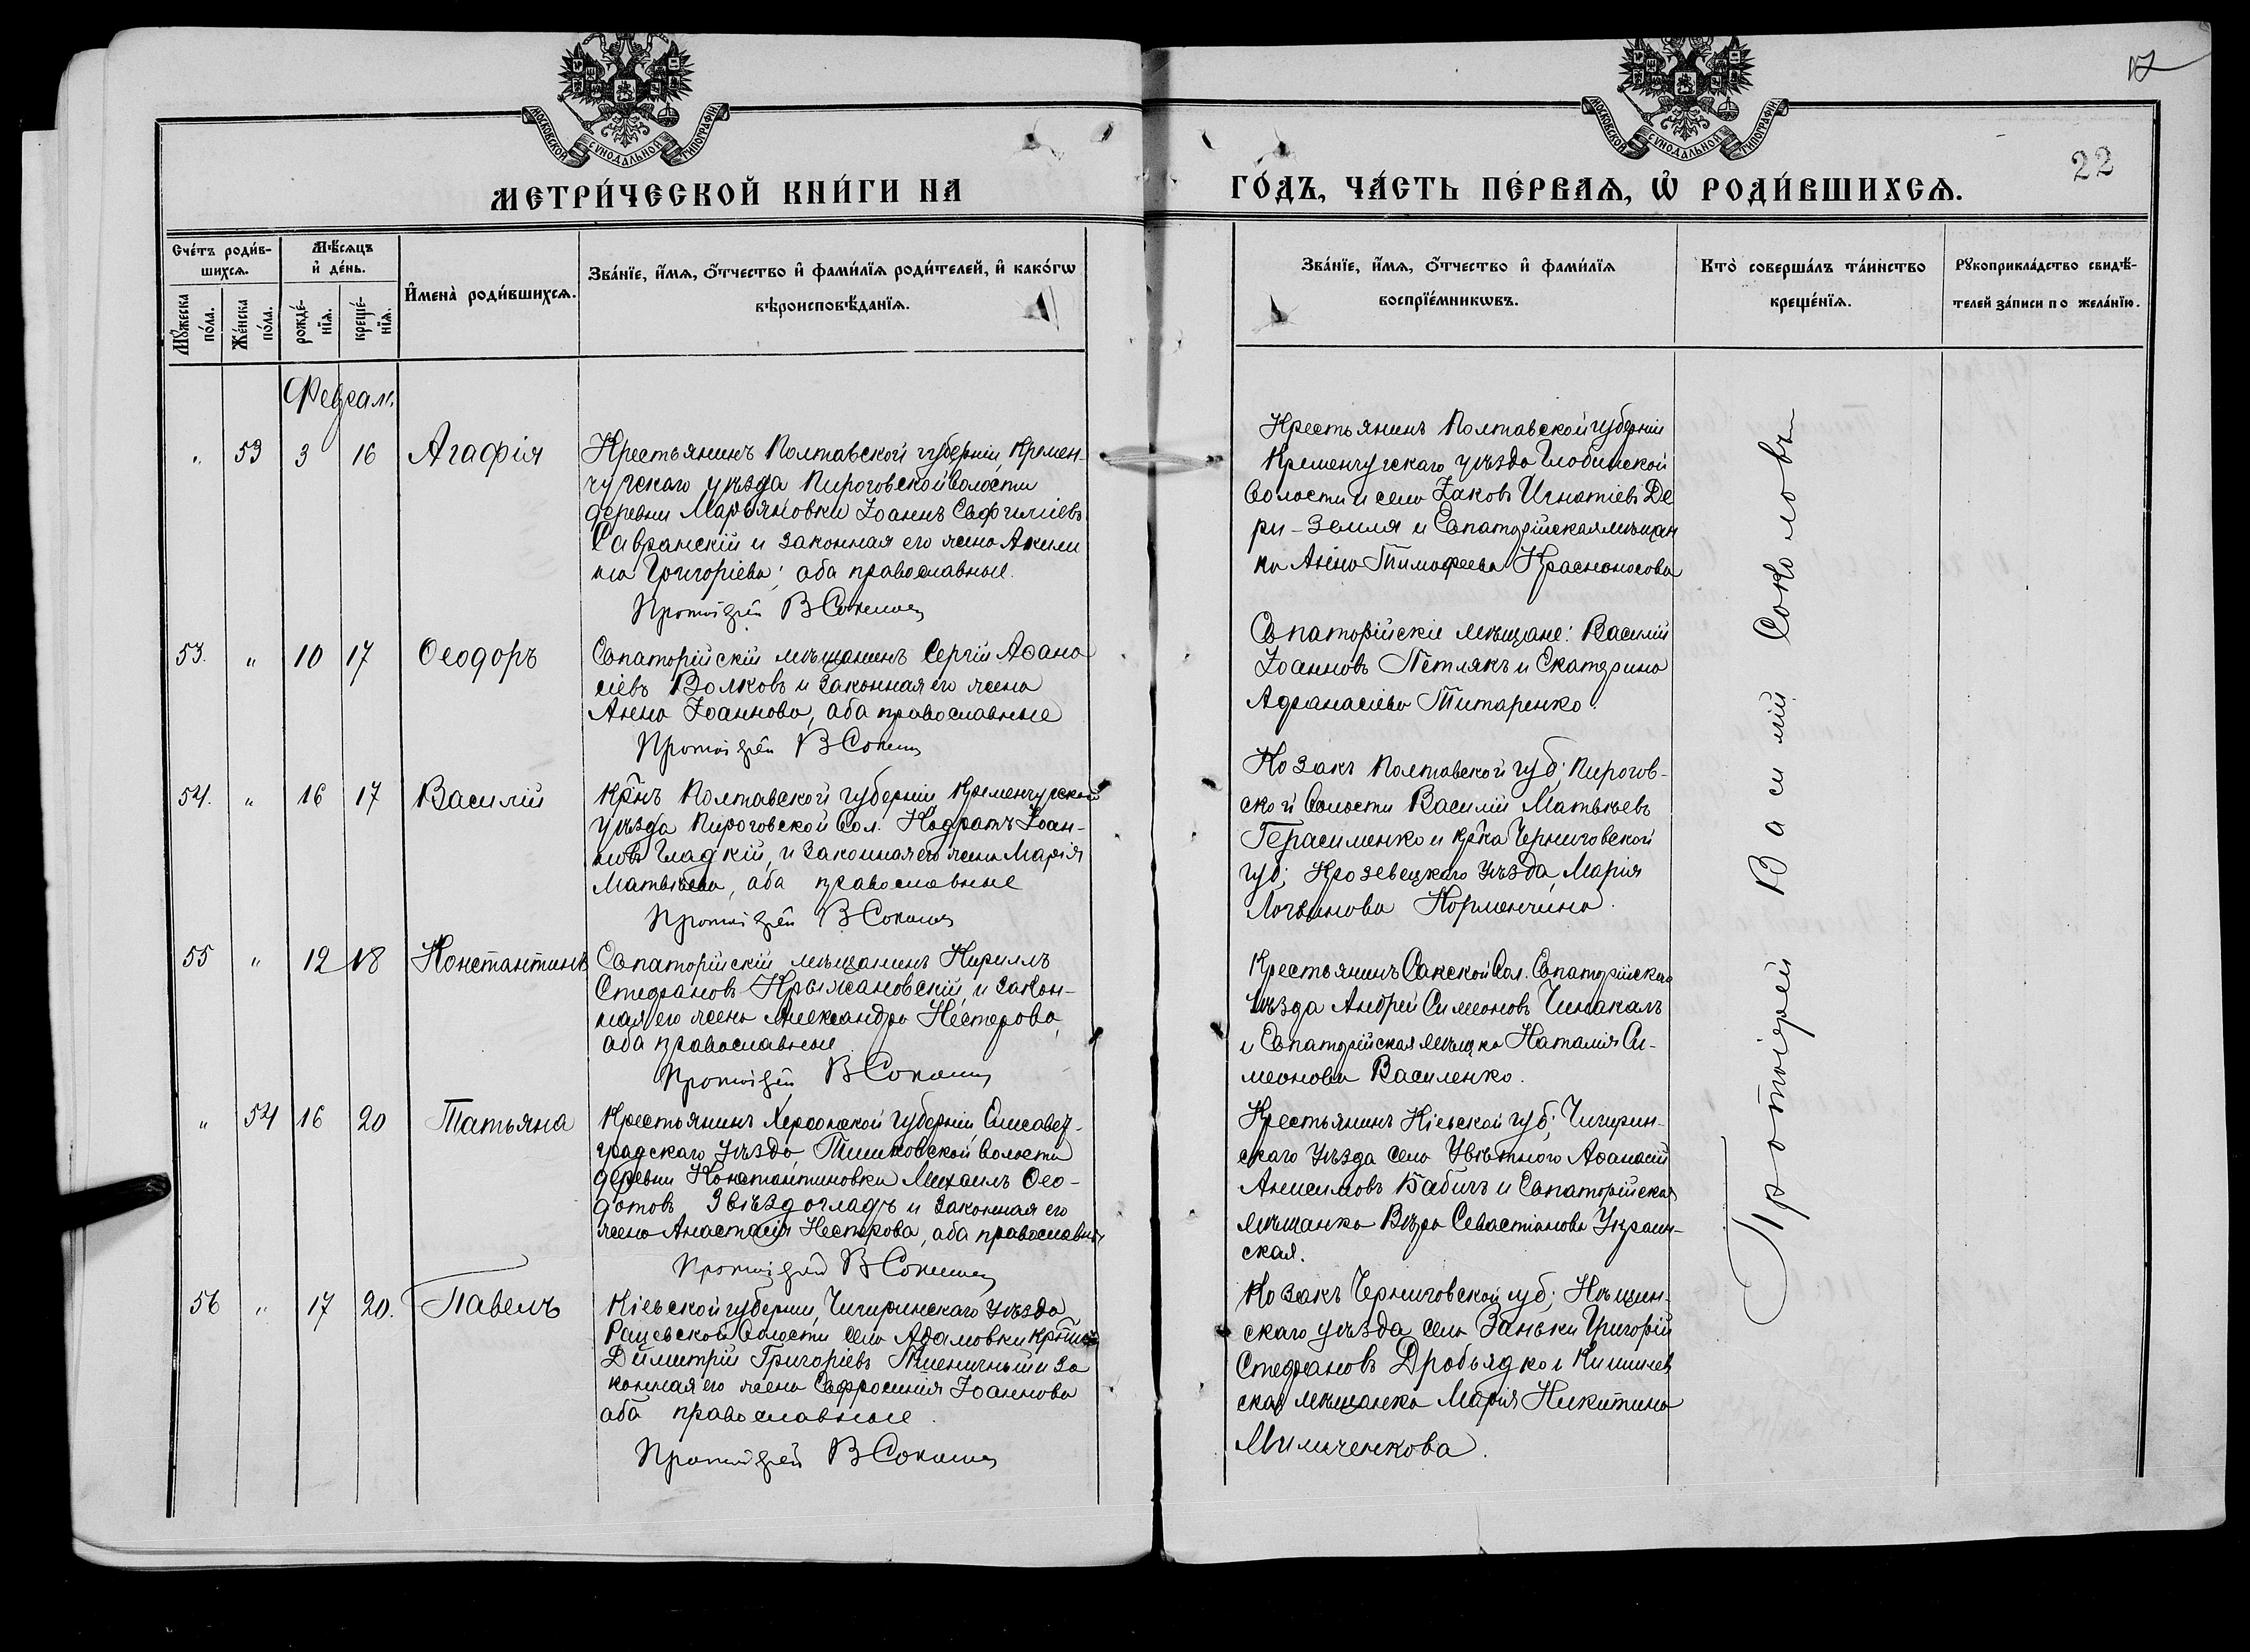 17
22
МОСКОВСКОЙ СѴНОДАЛЬНОЙ ТИПОГРАФІИ.
МОСКОВСКОЙ СѴНОДАЛЬНОЙ ТИПОГРАФІИ.
МЕТРИ́ЧЕСКОЙ КНИ́ГИ НА
ГО́ДЪ, ЧА́СТЬ ПЕ́РВАѦ, Ѡ҆ РОДИ́ВШИХСѦ.
Сче́тъ роди́в-
шихсѧ.
Мѣ́сѧцъ
и҆ де́нь.
И҆мена̀ роди́вшихсѧ.
Зва́нїе, и҆́мѧ, ѻ҆́тчество и҆ фами́лїѧ роди́телей, и҆ како́гѡ
вѣроисповѣ́данїѧ.
Мꙋ́жеска
по́ла.
Же́нска
по́ла.
рожде́-
нїѧ.
креще́-
нїѧ.
Зва́нїе, и҆́мѧ, ѻ҆́тчество и҆ фами́лїѧ
воспрїе́мникѡвъ.
Кто̀ соверша́лъ та́инство
креще́нїѧ.
Рꙋкоприкла́дство свидѣ́-
телей за́писи по жела́нїю.
Феврал.
" 53 3 16 Агафія
Крестьянинъ Полтавской губерніи, Кремен-
чугскаго уѣзда Пироговской волости
деревни Марьяновки Іоаннъ Евфиміевъ
Савранскій и законная его жена Акили
на Григоріева; оба православные.
Протоіерей В Соколовъ
Крестьянинъ Полтавской губерніи
Кременчугскаго уѣзда Глобинской
волости и села Іаковъ Игнатіевъ Де
ри-Земля и Евпаторійская мѣщан
ка Анна Тимофеева Красноносова
53. " 10 17 Ѳеодоръ
Евпаторійскій мѣщанинъ Сергій Аѳана
сіевъ Волковъ и законная его жена
Анна Іоаннова, оба православные
Протоіерей В Соколовъ
Евпаторійскіе мѣщане: Василій
Іоанновъ Петлякъ и Екатерина
Афанасіева Титаренко.
54. " 16 17 Василій
Кр̃нъ Полтавской губерніи, Кременчугскаго
уѣзда Пироговской вол. Кодратъ Іоан-
новъ Гладкій, и законная его жена Марія
Матвѣева, оба православные
Протоіерей В Соколовъ
Козакъ Полтавской губ; Пирогов-
ской волости Василій Матвѣевъ
Герасименко и кр̃ка Черниговской
губ; Кролевецкаго уѣзда, Марія
Логвинова
55 " 12 18 Константинъ
Евпаторійскій мѣщанинъ Кириллъ
Стефановъ Крыжановскій, и закон-
ная его жена Александра Нестерова,
оба православные
Протоіерей В Соколовъ
Крестьянинъ Сакской вол. Евпаторійскаго
уѣзда Андрей Симеоновъ Чинакалъ
и Евпаторійская мѣщ̃ка Наталія Си-
меонова Василенко.
" 54 16 20 Татьяна
Крестьянинъ Херсонской губерніи, Елисавет-
градскаго уѣзда, Тишковской волости
деревни Константиновки Михаилъ Ѳео-
дотовъ Звѣздогладъ и законная его
жена Анастасія Нестерова, оба православные
Протоіерей В Соколовъ
Крестьянинъ Кіевской губ; Чигирин-
скаго уѣзда села Аѳанасій
Анисимовъ Бабичъ и Евпаторійская
мѣщанка Вѣра Севастіанова Украин-
ская.
56 " 17 20. Павелъ
Кіевской губерніи, Чигиринскаго уѣзда
Рацевской волости села Адамовки кр̃нинъ
Димитрій Григоріевъ Пшеничный и за
конная его жена Евфросинія Іоаннова
оба православные.
Протоіерей В Соколовъ
Козакъ Черниговской губ; Нѣжин-
скаго уѣзда села Заньки Григорій
Стефановъ Дробьядко и Кишинев
ская мѣщанка Марія Никитина
Мильченкова.
Протоіерей Василій Соколовъ